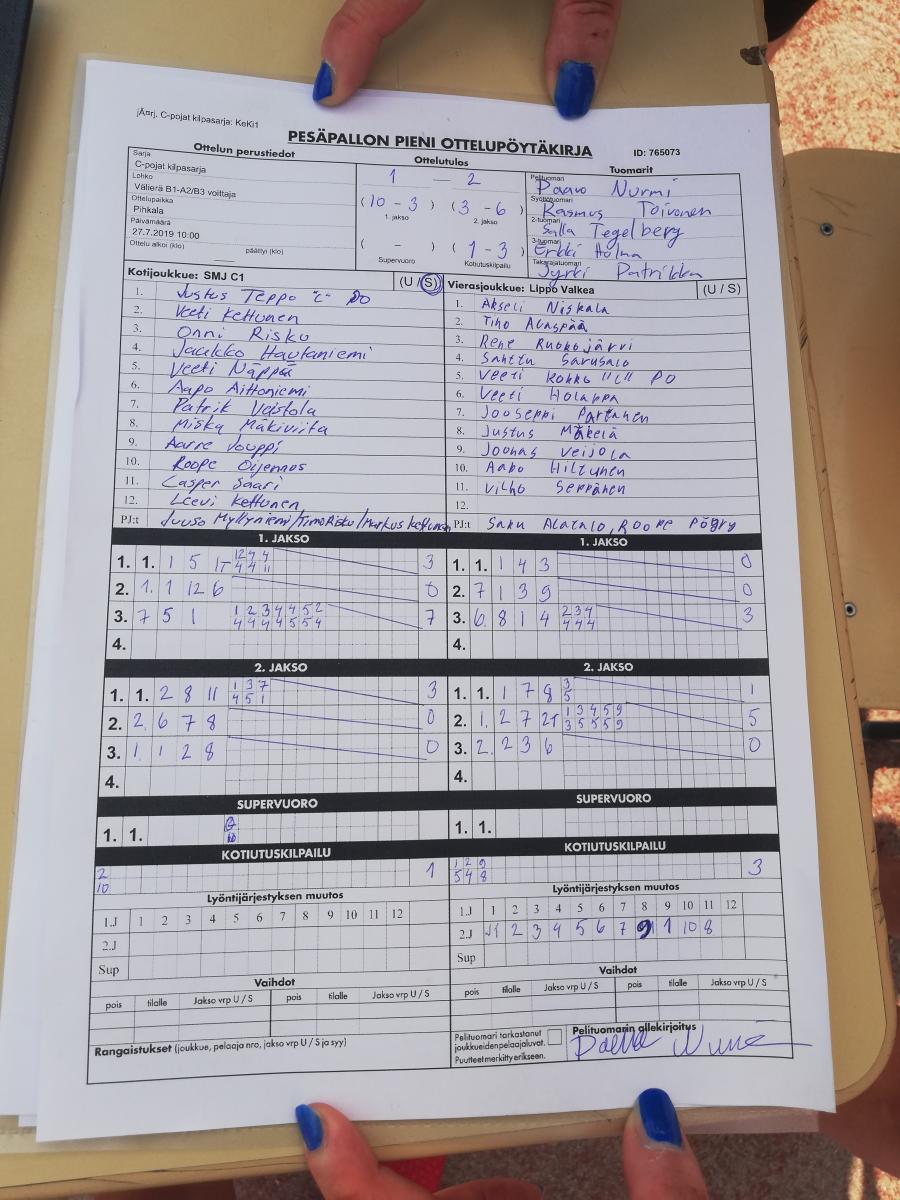 jÃ¤rj. C-pojat kilpasarja: KeKi1
PESÄPALLON PIENI OTTELUPÖYTÄKIRJA ID: 765073
Ottelun perustiedot Ottelutulos Tuomarit
Sarja
C-pojat kilpasarja
Lohko
Välierä B1-A2/B3 voittaja
Ottelupaikka
Pihkala
Päivämäärä
27.7.2019 10:00
Ottelu alkoi (klo) päättyi (klo)
1 — 2
(10 - 3) (3 - 6)
1. jakso 2. jakso
( - ) (1 - 3)
Supervuoro Kotiutuskilpailu
Pelituomari Paavo Nurmi
Syöttötuomari Rasmus Toivonen
2-tuomari Salla Tegelberg
3-tuomari Erkki Holma
Takarajatuomari Jyrki Patrikka
Kotijoukkue: SMJ C1 (U / S)
1. Justus Teppo "C" PO
2. Veeti Kettunen
3. Onni Risku
4. Jaukko Hautaniemi
5. Veeti Näppä
6. Aapo Aittoniemi
7. Patrik Uistola
8. Miska Mäkiviita
9. Aarre Jouppi
10. Roope Oijennus
11. Casper Saari
12. Leevi Kettunen
PJ:t Juuso Myllyniemi/Timo Risku/Markus Kettunen
Vierasjoukkue: Lippo Valkea (U / S)
1. Akseli Niskala
2. Tino Alaspää
3. Rene Ruokojärvi
4. Santtu Sarusalo
5. Veeti Kokko "C" PO
6. Veeti Holappa
7. Jooseppi Partanen
8. Justus Mäkelä
9. Joonas Veijola
10. Aapo Hiltunen
11. Vilho Seppänen
12.
PJ:t Saku Alatalo, Roope Pögry
1. JAKSO
1. 1. 1 5 1T 12 4 4 3
4 4 11
2. 1. 1 12 6 0
3. 7 5 1 1 2 3 4 4 5 2 7
4 4 4 4 5 5 4
4.
1. JAKSO
1. 1. 1 4 3 0
2. 7 1 3 9 0
3. 6. 8 1 4 2 3 4 3
4 4 4
4.
2. JAKSO
1. 1. 2 8 11 1 3 7 3
4 5 1
2. 2. 6 7 8 0
3. 1. 1 2 8 0
4.
2. JAKSO
1. 1. 1 7 8 3 1
5
2. 1. 2 7 2T 1 3 4 5 9 5
3 5 5 5 9
3. 2. 2 3 6 0
4.
SUPERVUORO
1. 1.
SUPERVUORO
1. 1.
KOTIUTUSKILPAILU
2 1
10
KOTIUTUSKILPAILU
1 2 9 3
5 4 8
Lyöntijärjestyksen muutos
1.J 1 2 3 4 5 6 7 8 9 10 11 12
2.J
Sup
Lyöntijärjestyksen muutos
1.J 1 2 3 4 5 6 7 8 9 10 11 12
2.J 11 2 3 4 5 6 7 9 1 10 8
Sup
Vaihdot
pois tilalle Jakso vrp U / S pois tilalle Jakso vrp U / S
Vaihdot
pois tilalle Jakso vrp U / S pois tilalle Jakso vrp U / S
Rangaistukset (joukkue, pelaaja nro, jakso vrp U / S ja syy)
Pelituomari tarkastanut
joukkueiden pelaajaluvat.
Puutteet merkitty erikseen.
Pelituomarin allekirjoitus
Paavo Nurmi